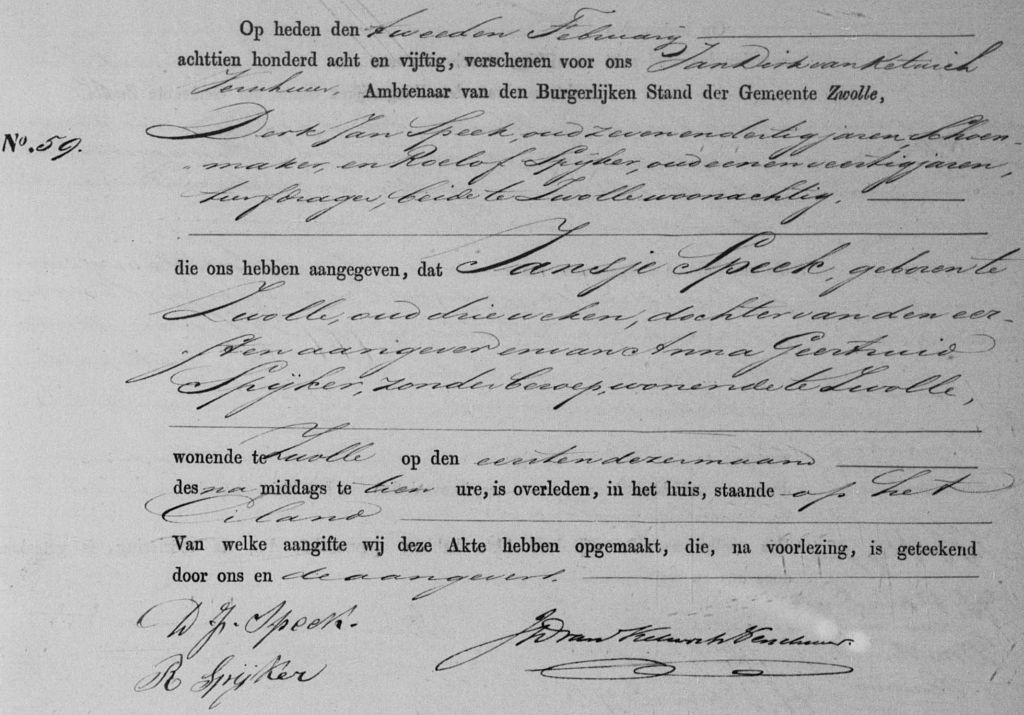 Op heden den tweeden Februarij
achttien honderd acht en vijftig, verschenen voor ons Jan Dirk van Ketwich
Verschuer, Ambtenaar van den Burgerlijken Stand der Gemeente Zwolle,
No. 59. Derk Jan Speek, oud zeven en dertig jaren, schoen-
maker, en Roelof Spijker, oud een en veertig jaren,
turfdrager, beide te Zwolle woonachtig.
die ons hebben aangegeven, dat Jansje Speek, geboren te
Zwolle, oud drie weken, dochter van den eer-
sten aangever en van Anna Geertruid
Spijker, zonder beroep, wonende te Zwolle,
wonende te Zwolle op den eersten dezer maand
des na middags te tien ure, is overleden, in het huis, staande op het
Eiland
Van welke aangifte wij deze Akte hebben opgemaakt, die, na voorlezing, is geteekend
door ons en de aangevers.
D J. Speek.
JD van Ketwich Verschuer
R Spijker